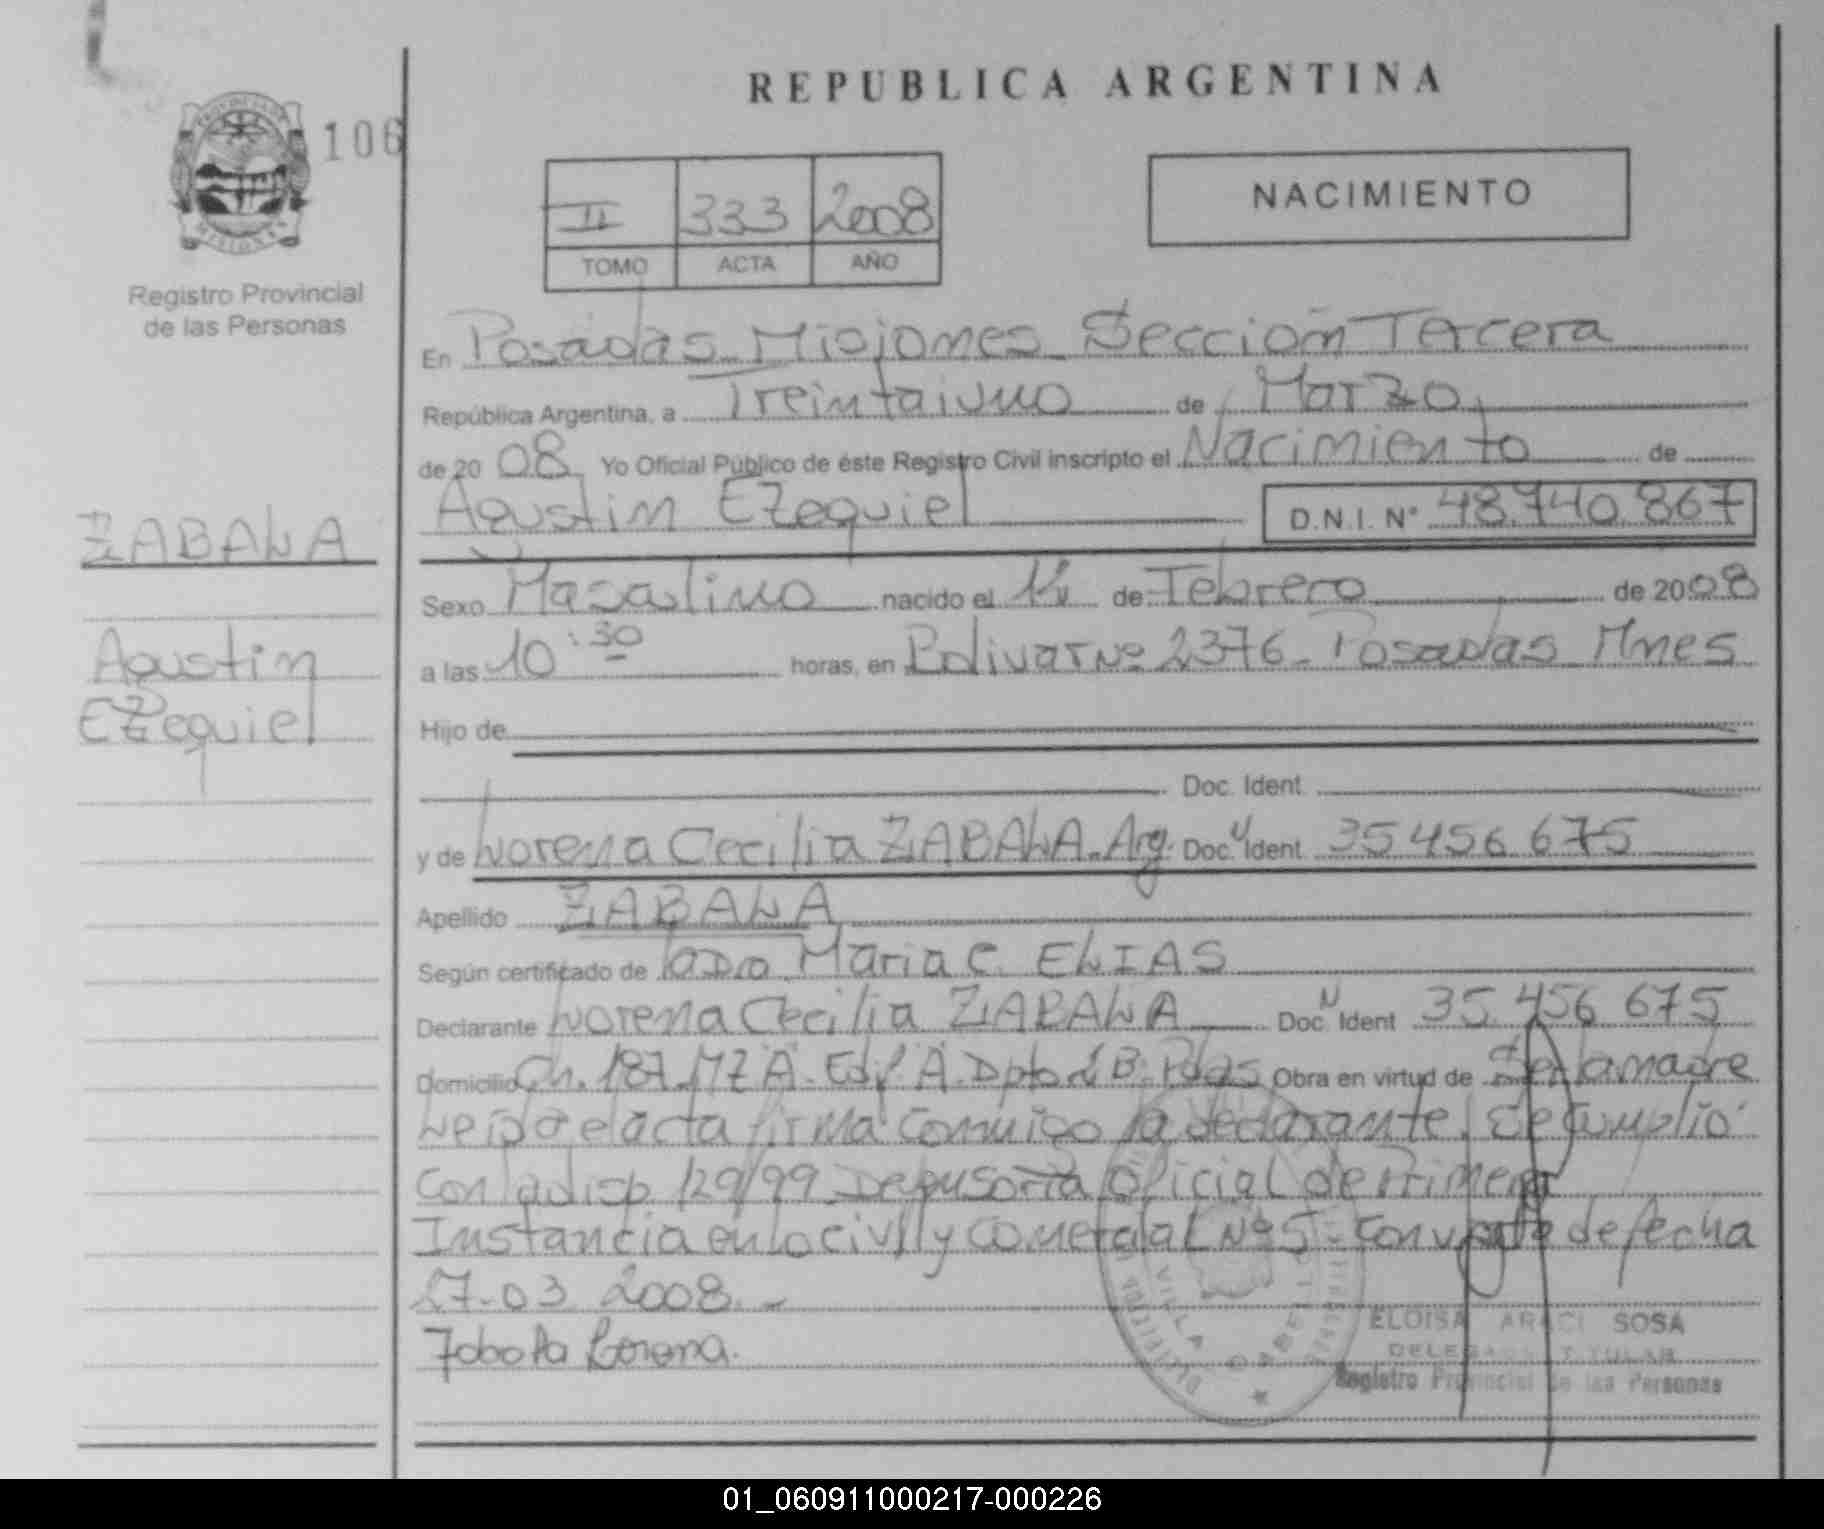 REPUBLICA ARGENTINA
106
NACIMIENTO
II 333 2008
TOMO ACTA AÑO
MISIONES
Registro Provincial
de las Personas
En Posadas Misiones Sección Tercera
República Argentina, a Treintaiuno de Marzo
de 2008 Yo Oficial Público de éste Registro Civil inscripto el Nacimiento de
Agustin Ezequiel D.N.I. N° 48.740.867
ZABALA
Agustin
Ezequiel
Sexo Masculino nacido el 14 de Febrero de 2008
a las 10:30 horas, en Bolivar Nº 2376 - Posadas Mnes
Hijo de
Doc. Ident.
y de Lorena Cecilia ZABALA. Arg. Doc. Ident. 35 456 675
Apellido ZABALA
Según certificado de Maria C. ELIAS
Declarante Lorena Cecilia ZABALA Doc. N Ident 35.456 675
Domicilio Ch. 187. MZ A. Edf A. Dpto B. Pdas Obra en virtud de Ser la madre
Leida el acta firma conmigo la declarante. Se cumplio
con la disp 129/99 Defensoria Oficial de Primera
Instancia en lo civil y comercial Nº 5 - de fecha
27-03 2008. -
Zabala Lorena.
VILLA CABELLO
ELOISA ARACI SOSA
DELEGADA TITULAR
Registro Provincial de las Personas
01_060911000217-000226